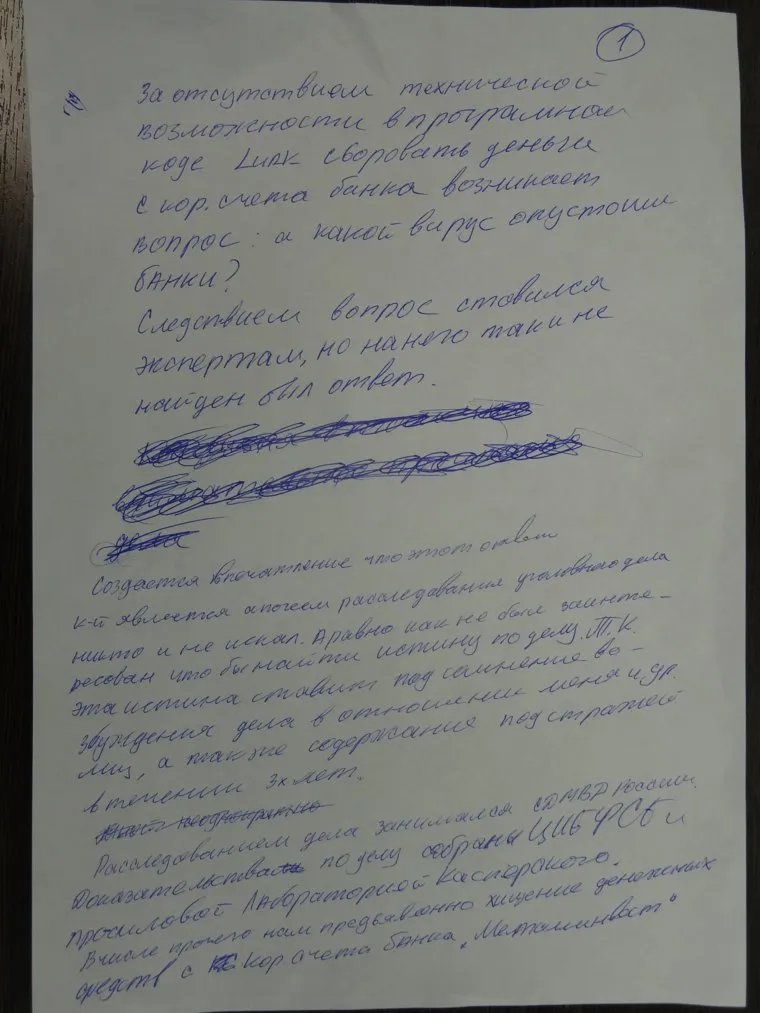 1
За отсутствием технической
возможности в програмном
коде Lurk своровать деньги
с кор. счета банка возникает
вопрос: а какой вирус опустошил
банки?
Следствием вопрос ставился
экспертам, но на него так и не
найден был ответ.
Создается впечатление что этот ответ
к-й является апогеем расследования уголовного дела
никто и не искал. А равно как не был заинте-
ресован что бы найти истину по делу. Т.К.
эта истина ставит под сомнение во-
збуждения дела в отношении меня и др.
лиц, а также содержания под стражей
в течении 3х лет.
Расследованием дела занимался СДМВД России.
Доказательства по делу собраны ЦИБ ФСБ и
прочиловой Лабораторией Касперского.
В числе прочего нам предъявленно хищение денежных
средств с кор счета банка "Металлинвест"